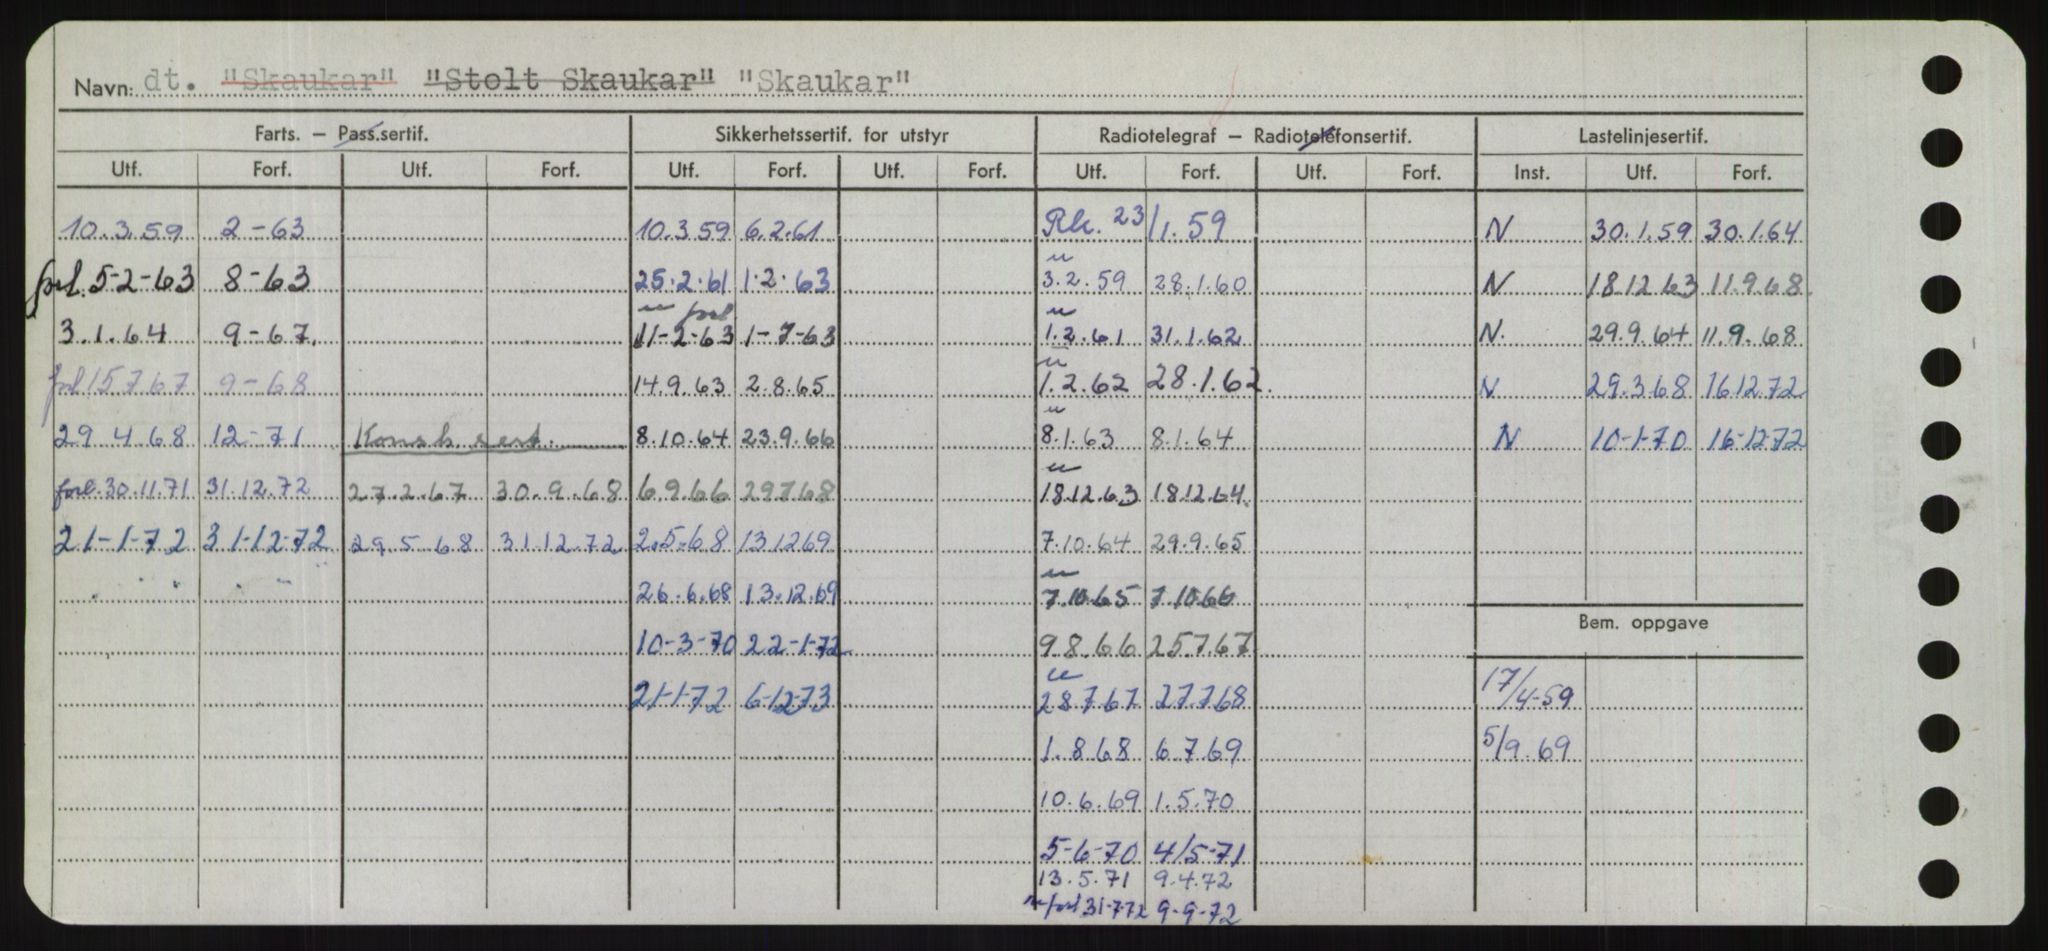 Navn: dt. "Skaukar" "Stolt Skaukar" "Skaukar"
Farts. – Pass.sertif. Sikkerhetssertif. for utstyr Radiotelegraf – Radiotelefonsertif. Lastelinjesertif.
Utf. Forf. Utf. Forf. Utf. Forf. Utf. Forf. Utf. Forf. Utf. Forf. Inst. Utf. Forf.
10.3.59 2-63 10.3.59 6.2.61 Rk. 23/1.59 N 30.1.59 30.1.64
forl. 5-2-63 8-63 25.2.61 1.2.63 3.2.59 28.1.60 N 18.12.63 11.9.68
3.1.64 9-67. forl 11-2-63 1-7-63 1.2.61 31.1.62 N. 29.9.64 11.9.68
forl 15.7.67 9-68 14.9.63 2.8.65 1.2.62 28.1.62. N 29.3.68 16.12.72
29.4.68 12-71 Konsk. sert. 8.10.64 23.9.66 8.1.63 8.1.64 N 10-1-70 16-12-72
forl. 30.11.71 31.12.72 27.2.67 30.9.68 6.9.66 29.7.68 18.12.63 18.12.64.
21-1-72 31-12-72 29.5.68 31.12.72 2.5.68 13.12.69 7.10.64 29.9.65
26.6.68 13.12.69 7.10.65 7.10.66
Bem. oppgave
10-3-70 22-1-72 9.8.66 25.7.67
21-1-72 6-12-73 28.7.67 27.7.68 17/4-59
1.8.68 6.7.69 5/9.69
10.6.69 1.5.70
5-6-70 4/5-71
13.5.71 9.4.72
forl 31-7-72 9-9-72